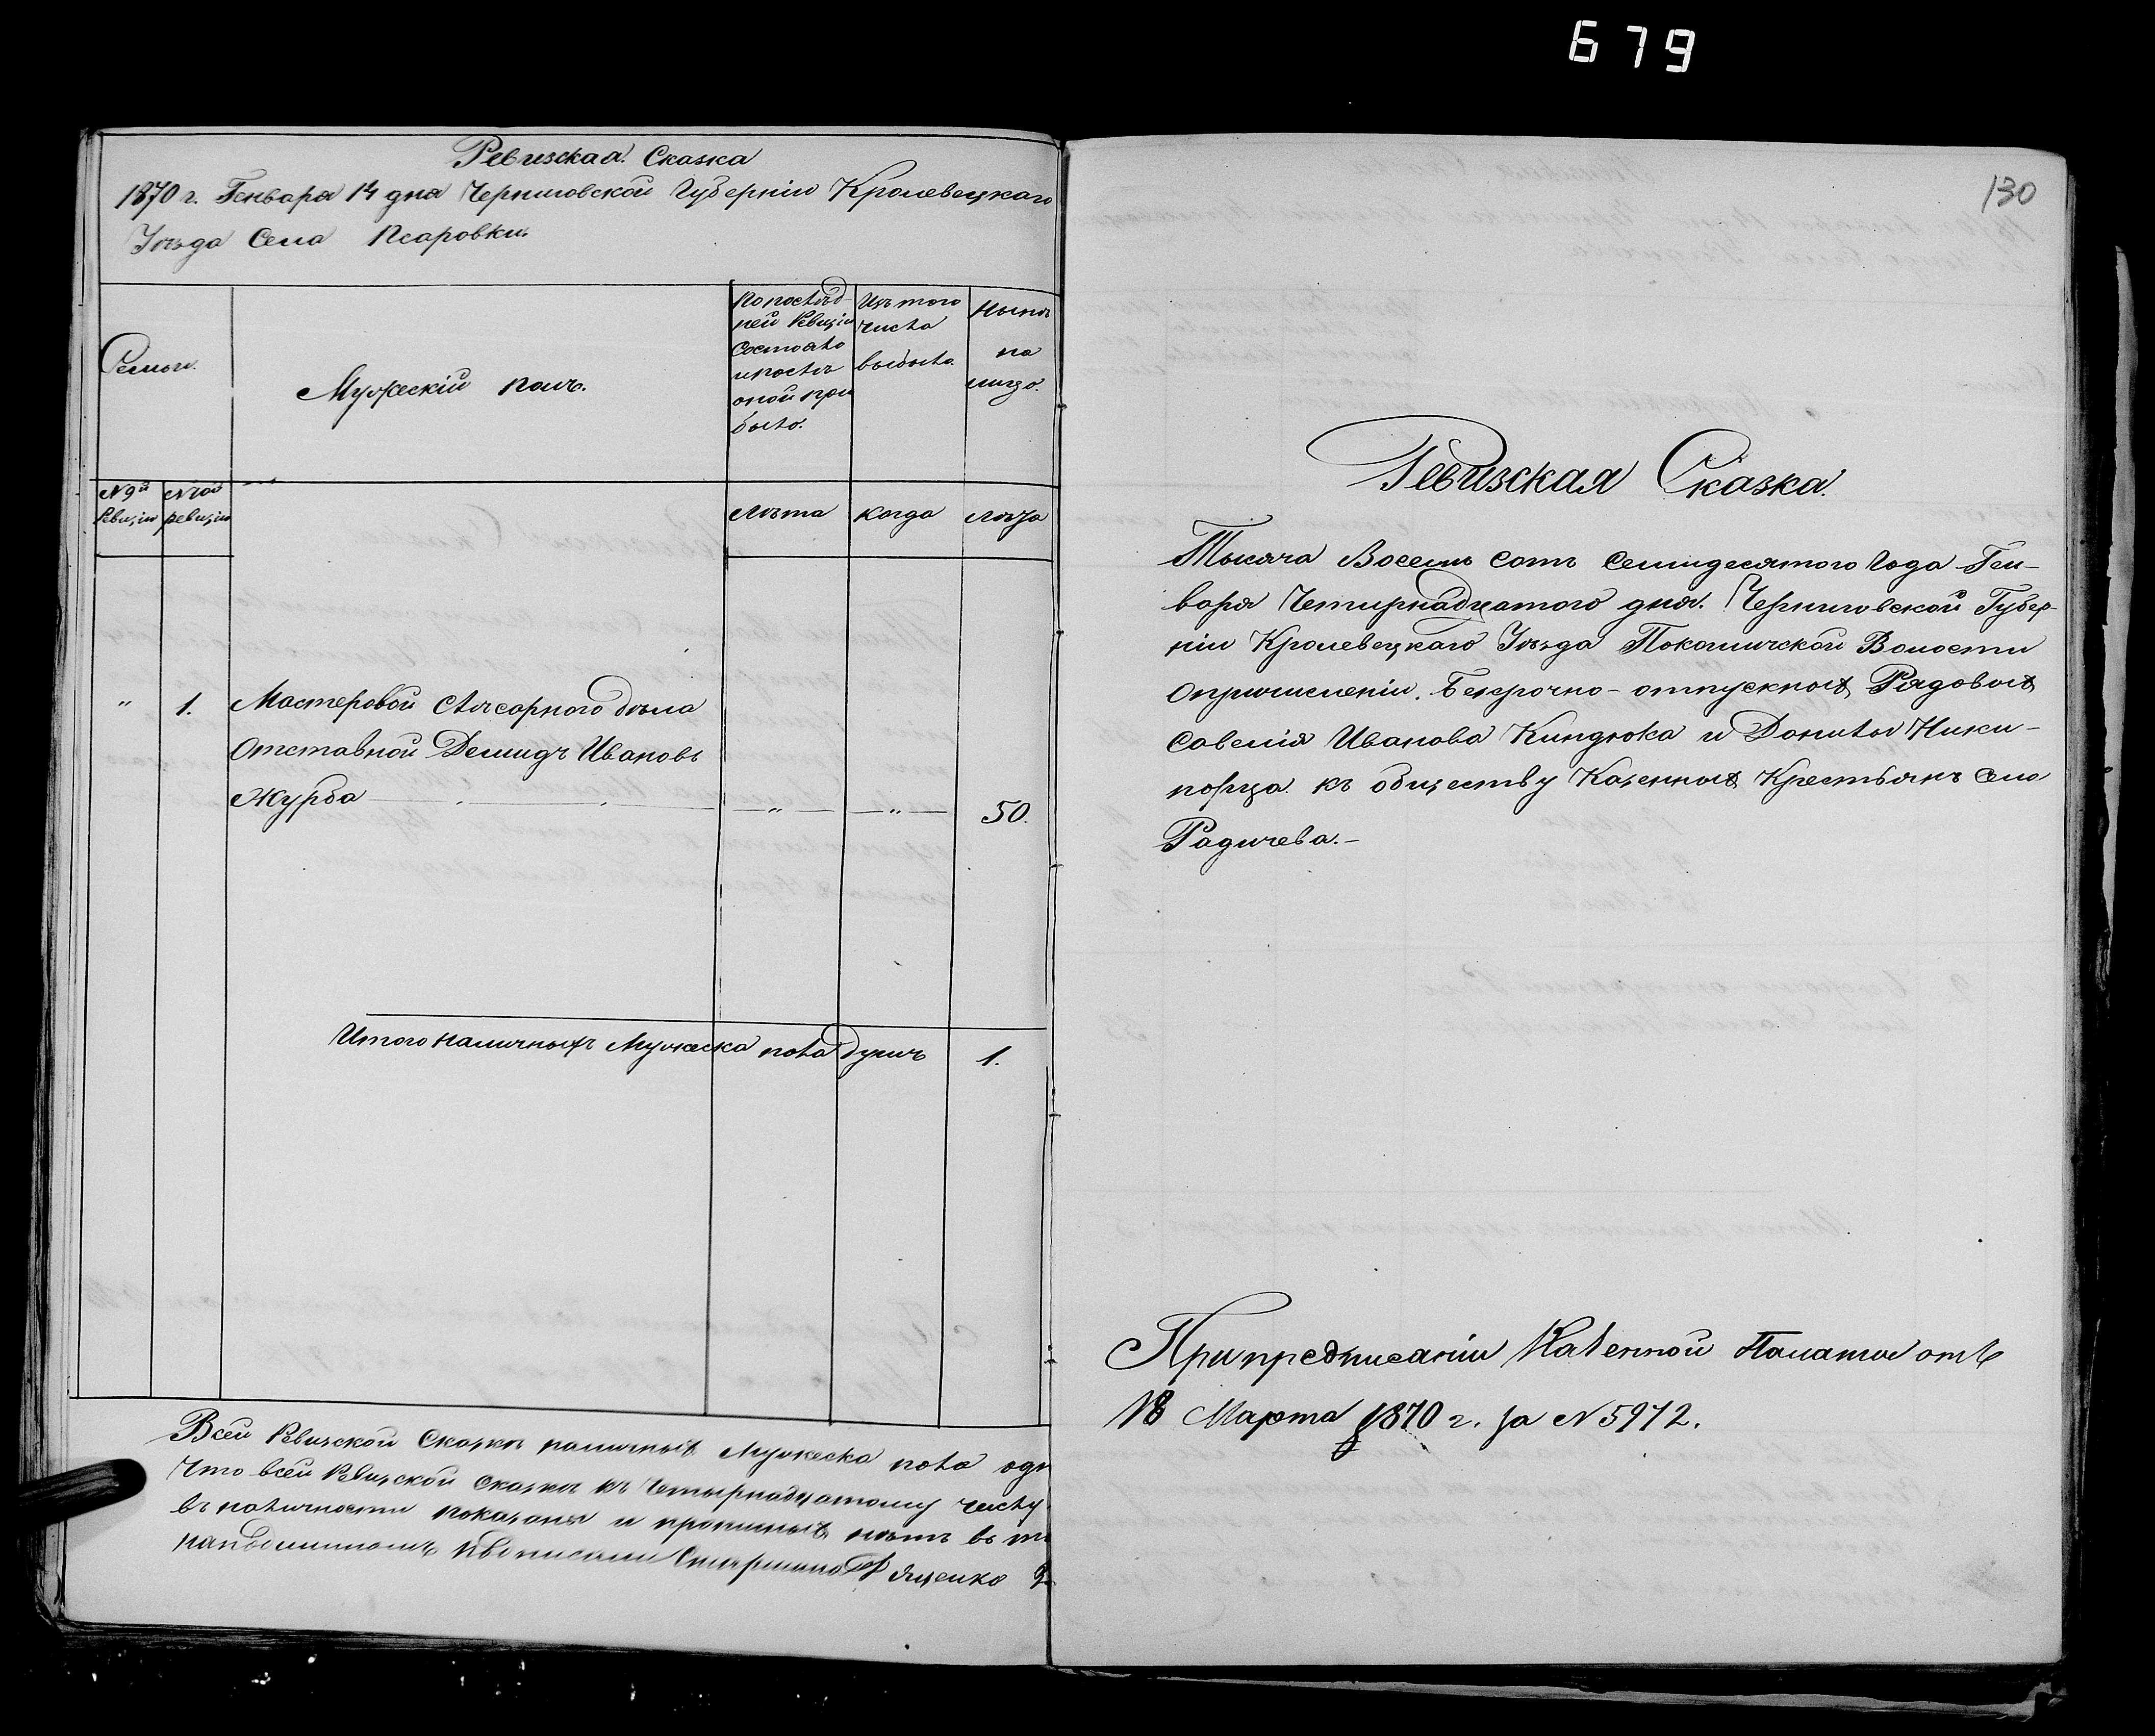 679
Ревизская Сказка
1870 г. Генваря 14 дня Черниговской Губерніи Кролевецкаго
Уѣзда Села Псаровки.
Семьи.
Мужескій полъ.
По послѣд-
ней Ревизіи
состояло
и послѣ
оной при
было.
Изъ того
числа
выбыло.
Нынѣ
на
лицо.
№ 9й
Ревизіи
№ 10й
ревизіи
Лѣта
когда
Лѣта
" 1. Мастеровой Слѣсарного дѣла
Отставной Демидъ Ивановъ
Журба — " — — " — 50.
Итого наличныхъ Мужеска пола душъ 1.
Всей Ревизской Сказкѣ наличныхъ Мужеска пола оди
Что всей Ревизской Сказкѣ къ Четырнадцатому числу
въ наличности показаны и прописныхъ нѣтъ въ т
Старшина Яценко
130
Ревизская Сказка.
Тысяча Восемь сотъ Семидесятого Года Ген-
варя Четирнадцатого дня. Черниговской Губер-
ніи Кролевецкаго Уѣзда Покошичской Волости
опричисленіи. Безсрочно-отпускныхъ Рядовыхъ
Савелія Иванова Киндюка и Данилы Ники-
порца къ обществу Казенныхъ Крестьянъ села
Радичева.-
При предписаніи Казенной Палаты отъ
18 Марта 1870 г. за № 5972.